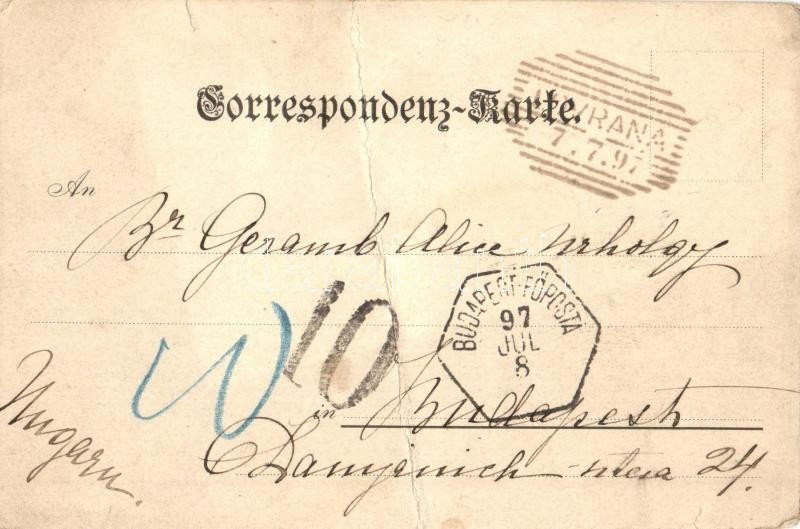 Correspondenz-Karte.
LOVRANA
7.7.97
An
Br Geramb Alice úrhölgy
10
BUDAPEST-FŐPOSTA
97
JUL
8
in Budapest
Ungarn.
Damjanich-utcza 24.